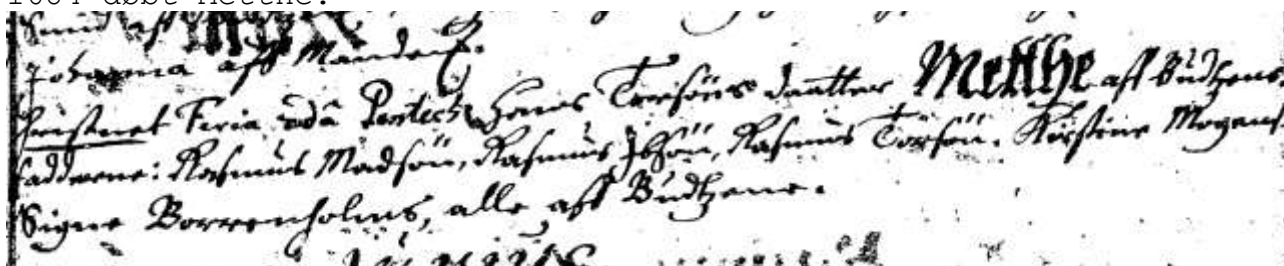 1664 døbt Metthe.
Johanna aff Mandemk.
Christnet Feria 2da Pentec: Hans Torsöns daatter Metthe aff Budtzene
faddrene: Rasmus Madsön, Rasmus Ibsön, Rasmus Torsön. Kirstine Mogens,
Signe Borrenholms, alle aff Budtzene.
Junius